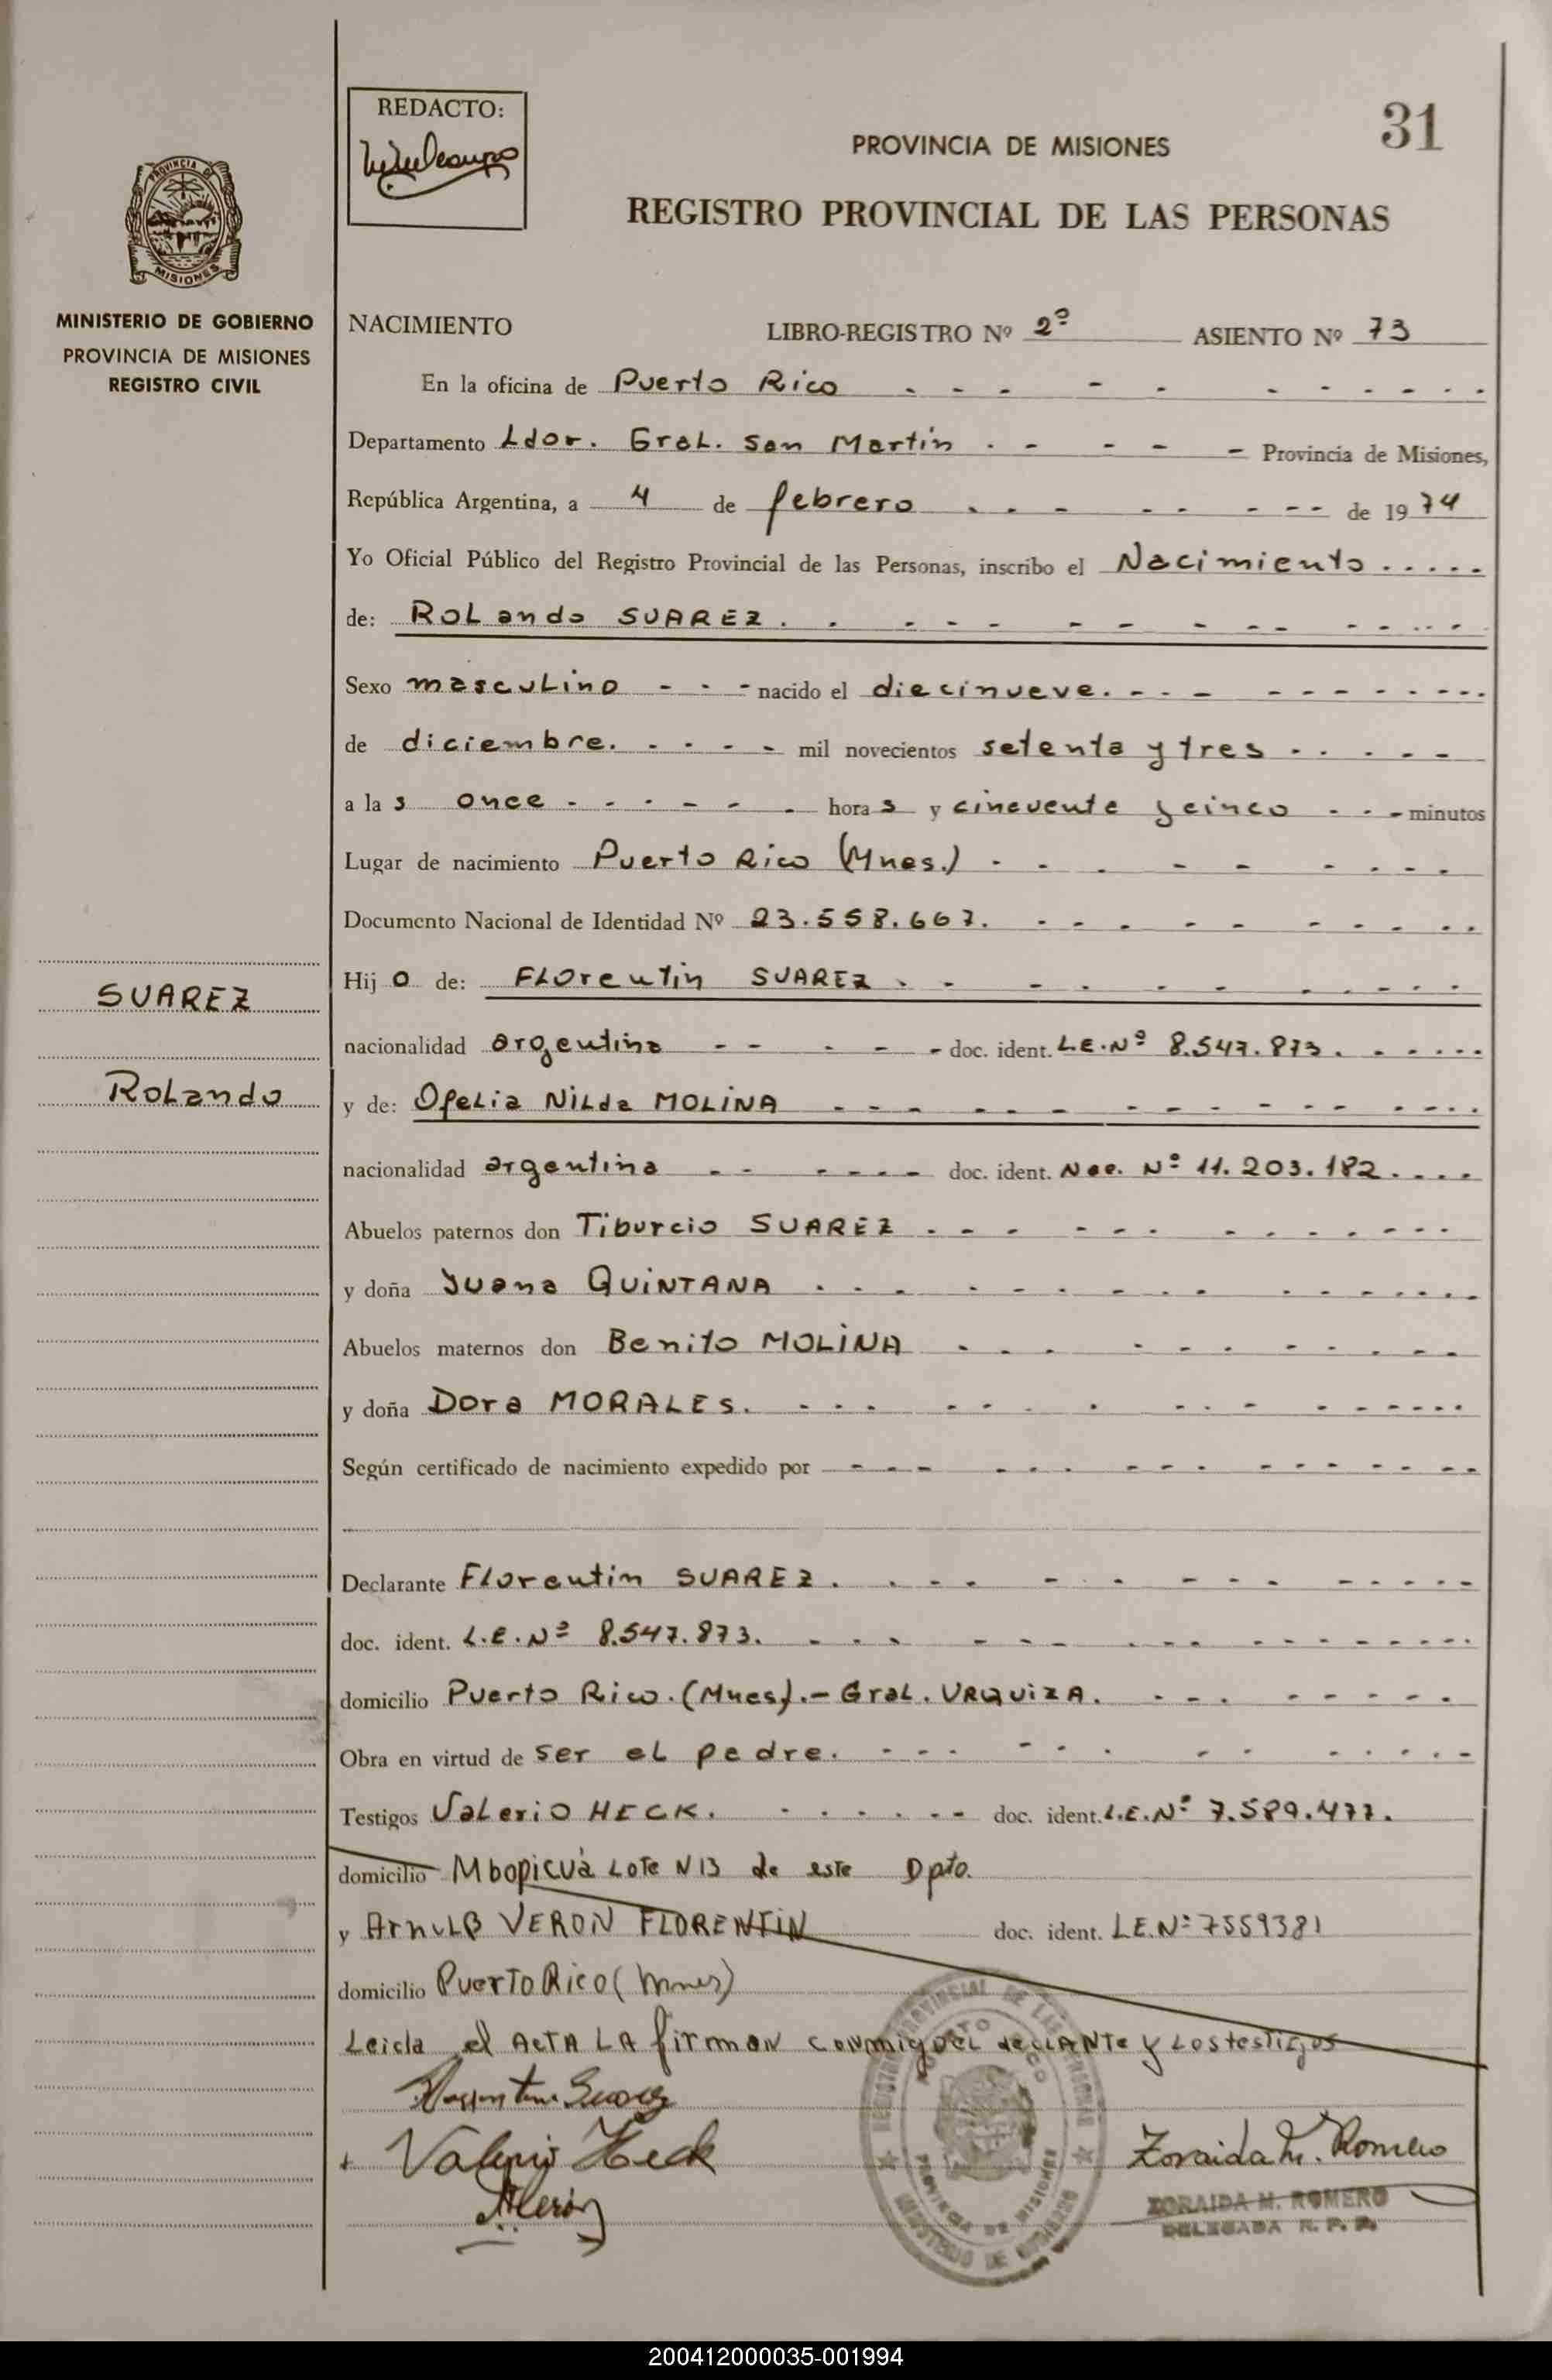 REDACTO:
31
PROVINCIA DE MISIONES
REGISTRO PROVINCIAL DE LAS PERSONAS
PROVINCIA D
MISIONES
MINISTERIO DE GOBIERNO
PROVINCIA DE MISIONES
REGISTRO CIVIL
NACIMIENTO LIBRO-REGISTRO Nº 2º ASIENTO Nº 73
En la oficina de Puerto Rico
Departamento Ldor. Gral. San Martín Provincia de Misiones,
República Argentina, a 4 de febrero de 1974
Yo Oficial Público del Registro Provincial de las Personas, inscribo el Nacimiento
de: Rolando SUAREZ.
Sexo masculino nacido el diecinueve.
de diciembre. mil novecientos setenta y tres
a las once horas y cincuenta y cinco minutos
Lugar de nacimiento Puerto Rico (Mnes.)
Documento Nacional de Identidad Nº 23.558.667.
SUAREZ
Hijo de: Florentin SUAREZ
nacionalidad argentina doc. ident. L.E.Nº 8.547.873.
Rolando
y de: Ofelia Nilda MOLINA
nacionalidad argentina doc. ident. Nº 11.203.182.
Abuelos paternos don Tiburcio SUAREZ
y doña Juana QUINTANA
Abuelos maternos don Benito MOLINA
y doña Dora MORALES.
Según certificado de nacimiento expedido por
Declarante Florentin SUAREZ.
doc. ident. L.E.Nº 8.547.873.
domicilio Puerto Rico.(Mnes).- Gral. URQUIZA.
Obra en virtud de ser el padre.
Testigos Valerio HECK. doc. ident. L.E.Nº 7.589.477.
domicilio Mbopicuà Lote N13 de este Dpto.
y VERON FLORENTIN doc. ident. L.E.Nº 7559381
domicilio Puerto Rico (Mnes)
Leida el ACTA LA firman conmigo el decLANTe y Los testigos
Florentin Suarez
Valerio Heck
Veron
Zoraida M. Romero
ZORAIDA M. ROMERO
DELEGADA R. P. P.
REGISTRO PROVINCIAL DE LAS PERSONAS
PUERTO RICO
PROVINCIA DE MISIONES
MINISTERIO DE GOBIERNO
200412000035-001994